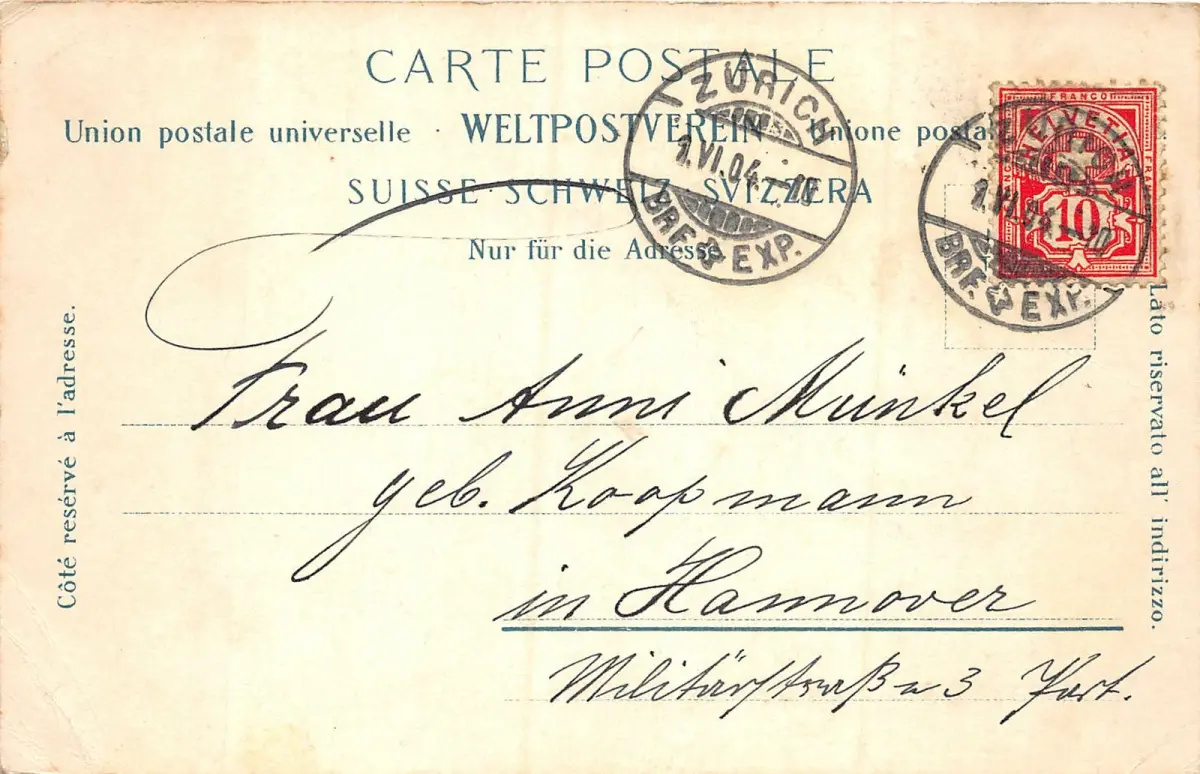 CARTE POSTALE
Union postale universelle · WELTPOSTVEREIN · Unione postale
SUISSE · SCHWEIZ · SVIZZERA
Nur für die Adresse
Côté resérvé à l'adresse.
Lato riservato all' indirizzo.
ZÜRICH
1.VI.04.–10
BRF. EXP.
FRANCO
HELVETIA
10
1.VI.04.–10
BRF. EXP.
Frau Anni Münkel
geb. Koopmann
in Hannover
Militärstraße 3 Part.